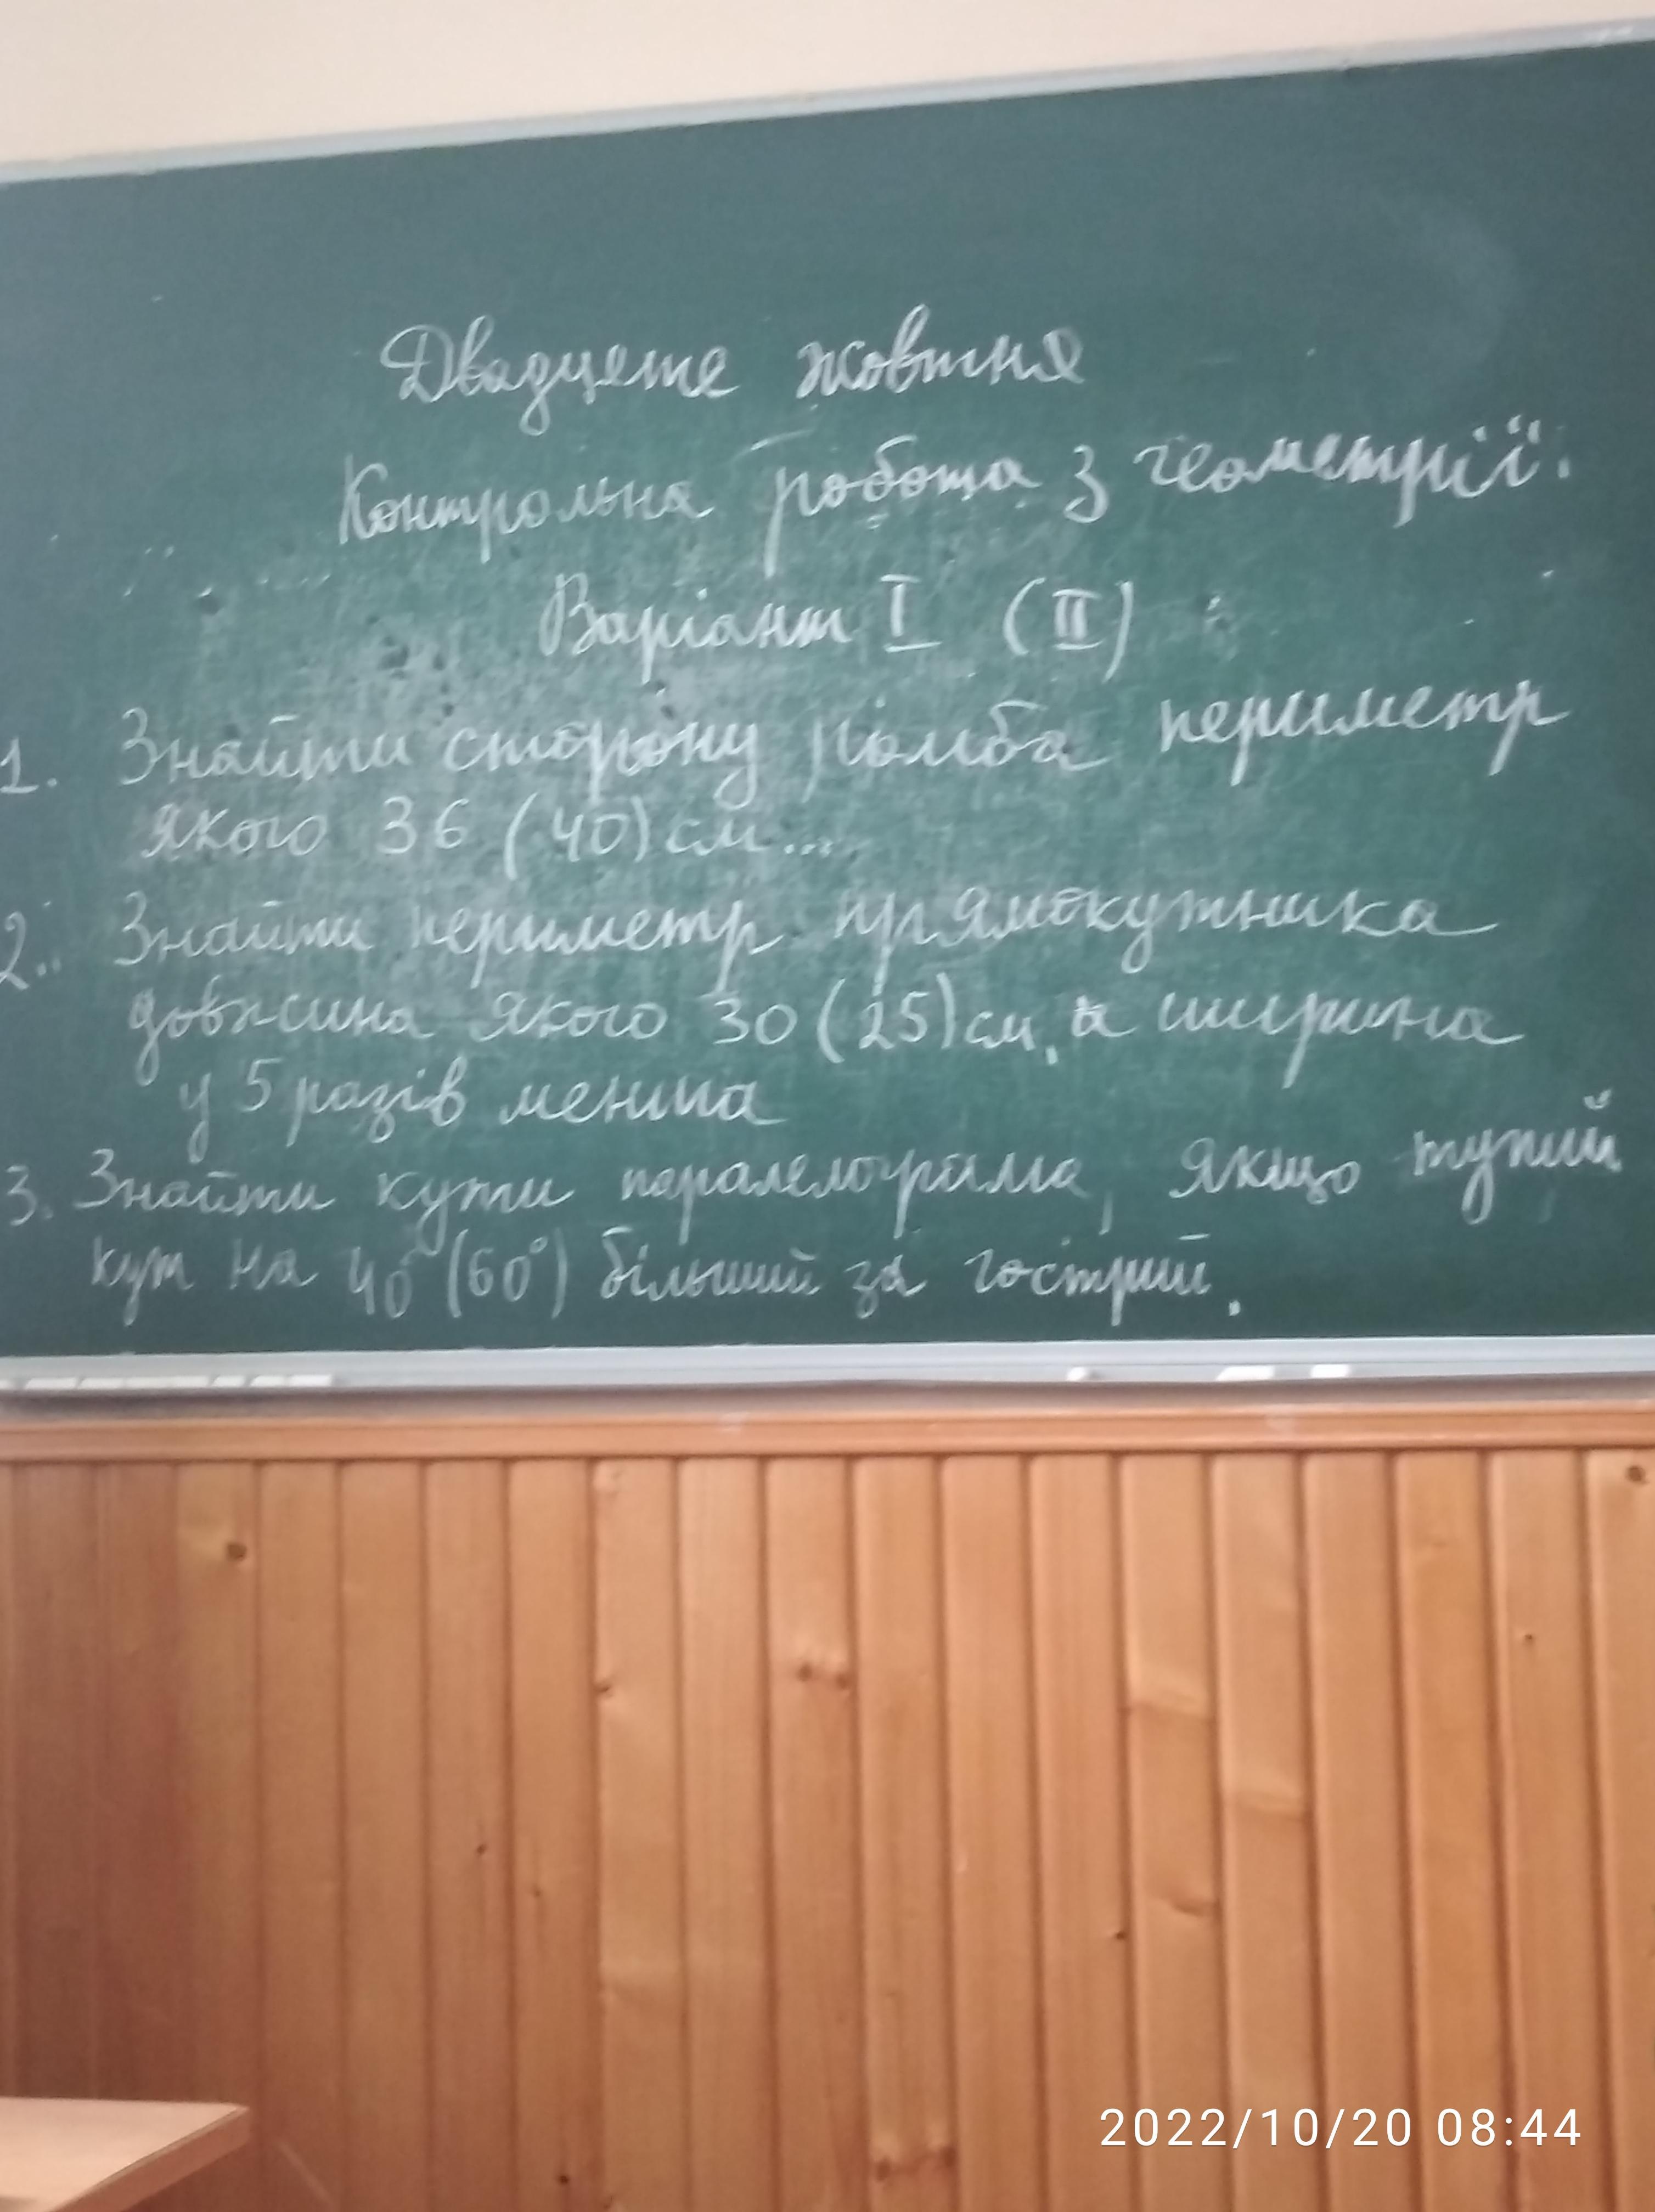 Двадцяте жовтня
Контрольна робота з геометрії.
Варіант I (II)
1. Знайти сторону ромба периметр
якого 36 (40) см...
2. Знайти периметр прямокутника
довжина якого 30 (25) см, а ширина
у 5 разів менша
3. Знайти кути паралелограма, якщо тупий
кут на 40° (60°) більший за гострий.
2022/10/20 08:44